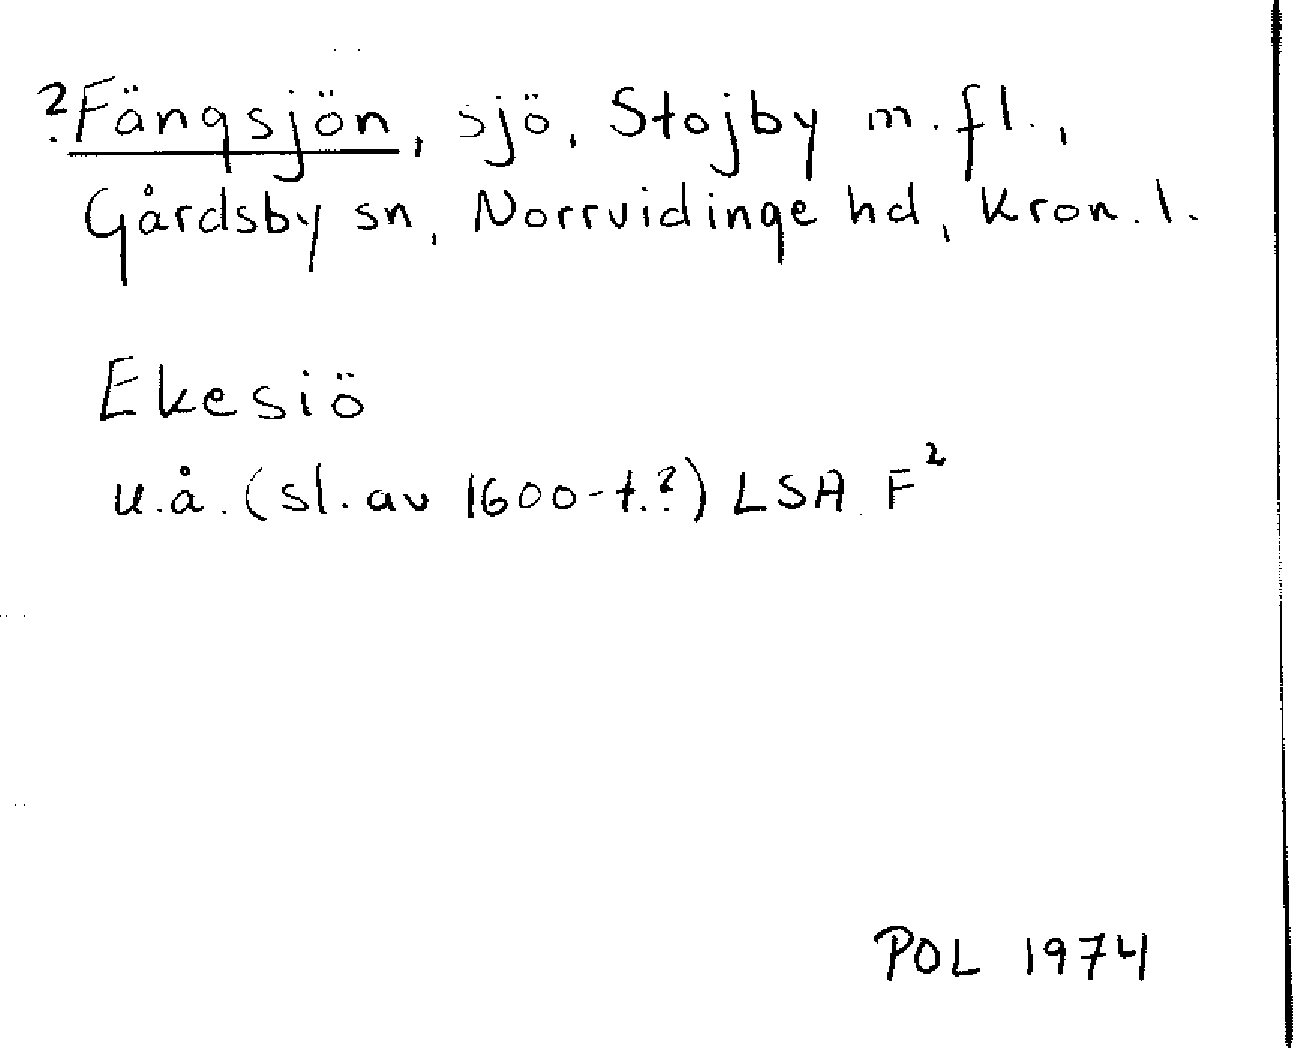 ?Fängsjön, sjö, Stojby m.fl.,
Gårdsby sn, Norrvidinge hd, Kron.l.
Ekesiö
u.å. (sl. av 1600-t.?) LSA F²
POL 1974